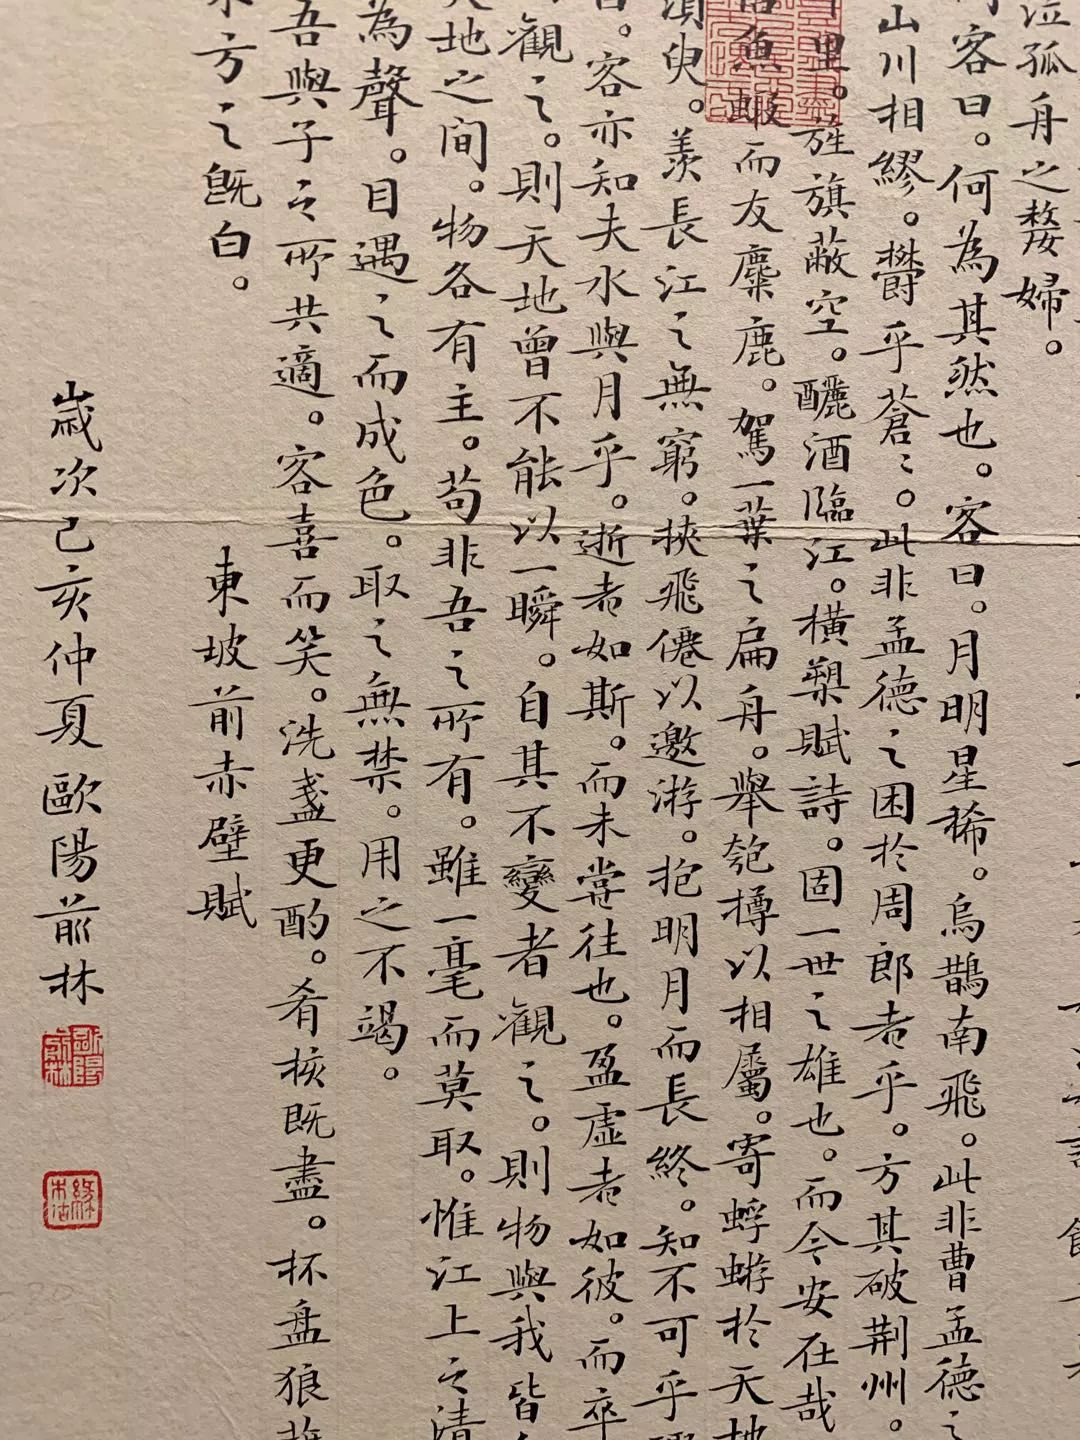 泣孤舟之嫠婦。
客曰。何為其然也。客曰。月明星稀。烏鵲南飛。此非曹孟德之
山川相繆。鬱乎蒼〻。此非孟德之困於周郎者乎。方其破荆州。
里。旌旗蔽空。釃酒臨江。橫槊賦詩。固一世之雄也。而今安在哉
魚蝦而友麋鹿。駕一葉之扁舟。舉匏樽以相屬。寄蜉蝣於天地
須臾。羨長江之無窮。挾飛僊以遨游。抱明月而長終。知不可乎
。客亦知夫水與月乎。逝者如斯。而未嘗往也。盈虛者如彼。而卒
觀之。則天地曾不能以一瞬。自其不變者觀之。則物與我皆
天地之間。物各有主。苟非吾之所有。雖一毫而莫取。惟江上之清
為聲。目遇之而成色。取之無禁。用之不竭。
吾與子之所共適。客喜而笑。洗盞更酌。肴核既盡。杯盤狼
東方之既白。
東坡前赤壁賦
歲次己亥仲夏歐陽前林